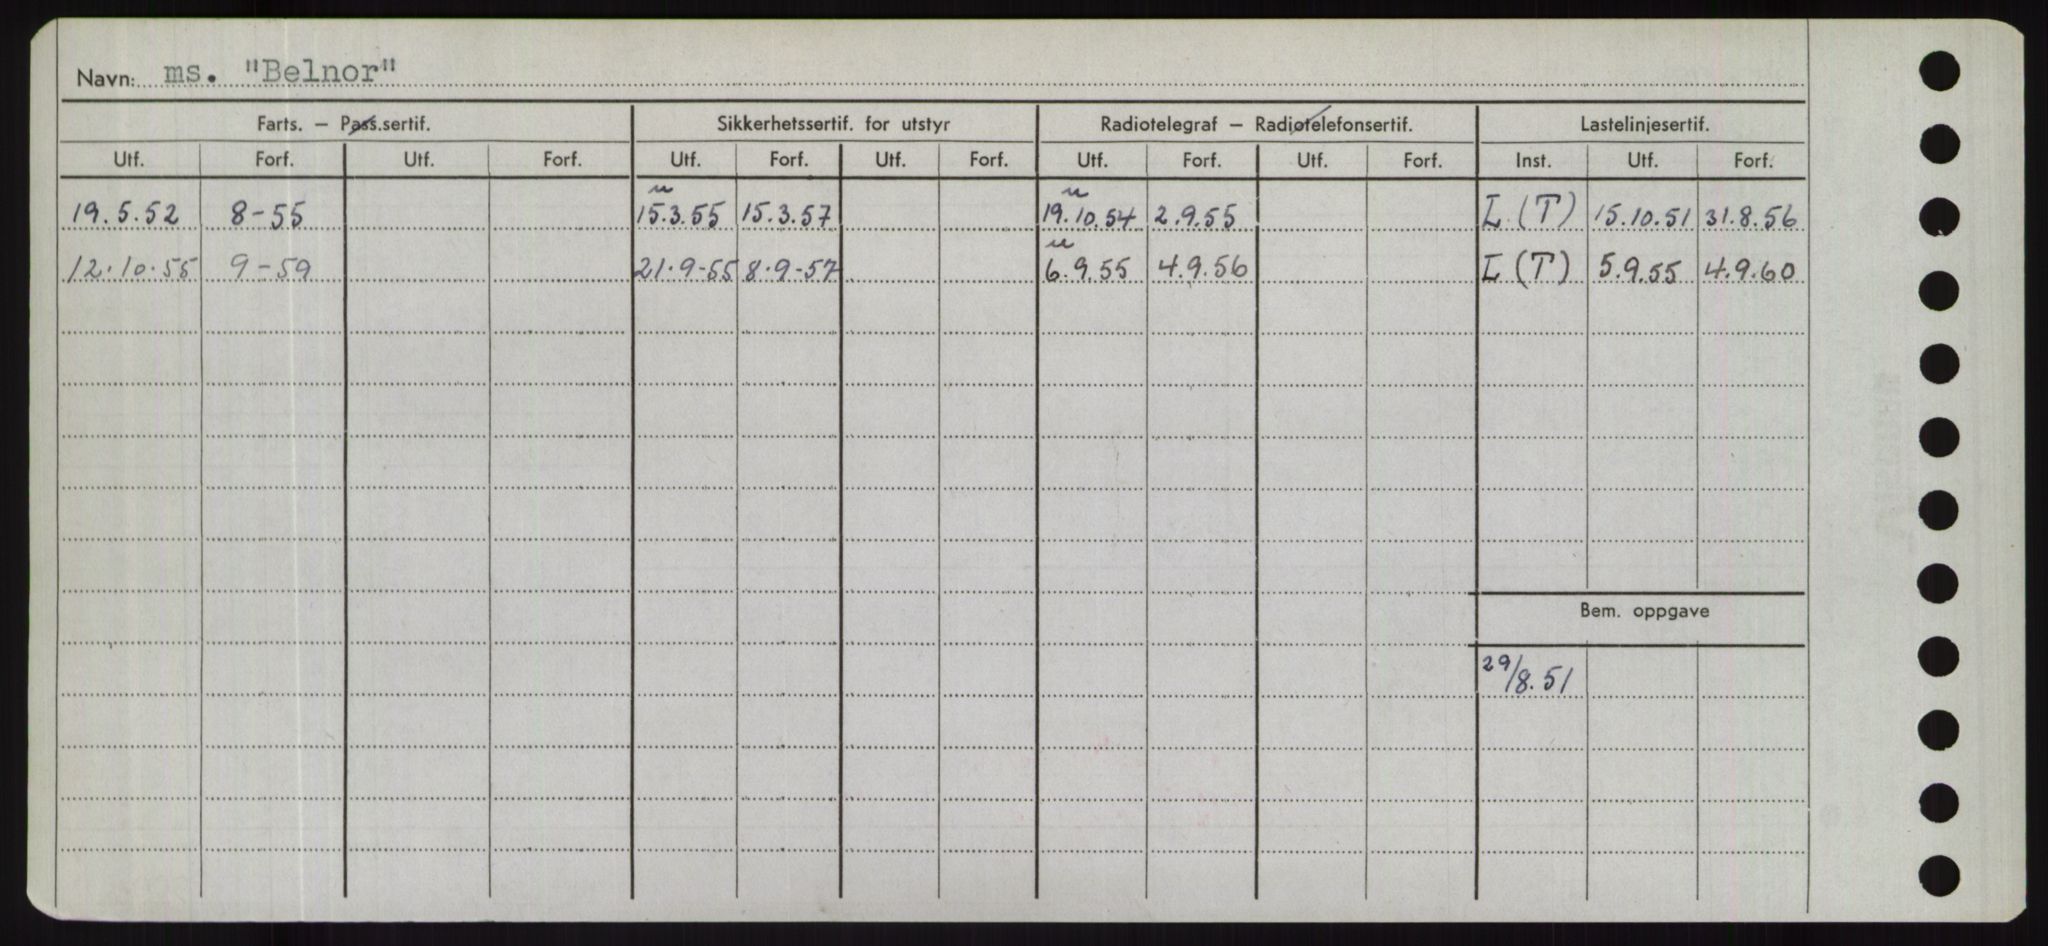 Navn: ms. "Belnor"
Farts. – Pass.sertif. Sikkerhetssertif. for utstyr Radiotelegraf – Radiotelefonsertif. Lastelinjesertif.
Utf. Forf. Utf. Forf. Utf. Forf. Utf. Forf. Utf. Forf. Utf. Forf. Inst. Utf. Forf.
u u
19.5.52 8-55 15.3.55 15.3.57 19.10.54 2.9.55 L.(T) 15.10.51 31.8.56
u
12.10.55 9-59 21.9-55 8.9-57 6.9.55 4.9.56 L(T) 5.9.55 4.9.60
Bem. oppgave
29/8.51